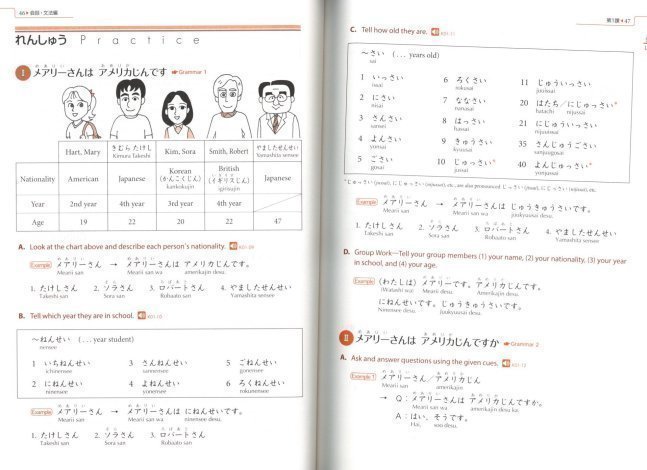 46▶会話・文法編
れんしゅう Practice
Ⅰ メアリーさんは アメリカじんです ☛ Grammar 1
Hart, Mary
きむら たけし
Kimura Takeshi
Kim, Sora
Smith, Robert
やましたせんせい
Yamashita sensee
Nationality American Japanese Korean (かんこくじん) kankokujin British (イギリスじん) igirisujin Japanese
Year 2nd year 4th year 3rd year 4th year
Age 19 22 20 22 47
A. Look at the chart above and describe each person's nationality. K01-09
Example メアリーさん → メアリーさんは アメリカじんです。
Mearii san Mearii san wa amerikajin desu.
1. たけしさん 2. ソラさん 3. ロバートさん 4. やましたせんせい
Takeshi san Sora san Robaato san Yamashita sensee
B. Tell which year they are in school. K01-10
〜ねんせい (. . . year student)
nensee
1 いちねんせい 3 さんねんせい 5 ごねんせい
ichinensee sannensee gonensee
2 にねんせい 4 よねんせい 6 ろくねんせい
ninensee yonensee rokunensee
Example メアリーさん → メアリーさんは にねんせいです。
Mearii san Mearii san wa ninensee desu.
1. たけしさん 2. ソラさん 3. ロバートさん
Takeshi san Sora san Robaato san
第1課◀47
C. Tell how old they are. K01-11
〜さい (. . . years old)
sai
1 いっさい 6 ろくさい 11 じゅういっさい
issai rokusai juuissai
2 にさい 7 ななさい 20 はたち/にじゅっさい*
nisai nanasai hatachi nijussai
3 さんさい 8 はっさい 21 にじゅういっさい
sansai hassai nijuuissai
4 よんさい 9 きゅうさい 35 さんじゅうごさい
yonsai kyuusai sanjuugosai
5 ごさい 10 じゅっさい* 40 よんじゅっさい*
gosai jussai yonjussai
Example メアリーさん → メアリーさんは じゅうきゅうさいです。
Mearii san Mearii san wa juukyuusai desu.
1. たけしさん 2. ソラさん 3. ロバートさん 4. やましたせんせい
Takeshi san Sora san Robaato san Yamashita sensee
D. Group Work—Tell your group members (1) your name, (2) your nationality, (3) your year
in school, and (4) your age.
Example (わたしは) メアリーです。アメリカじんです。
(Watashi wa) Mearii desu. Amerikajin desu.
にねんせいです。じゅうきゅうさいです。
Ninensee desu. Juukyuusai desu.
Ⅱ メアリーさんは アメリカじんですか ☛ Grammar 2
A. Ask and answer questions using the given cues. K01-12
Example 1 メアリーさん/アメリカじん
Mearii san amerikajin
→ Q：メアリーさんは アメリカじんですか。
Mearii san wa amerikajin desu ka.
A：はい、そうです。
Hai, soo desu.